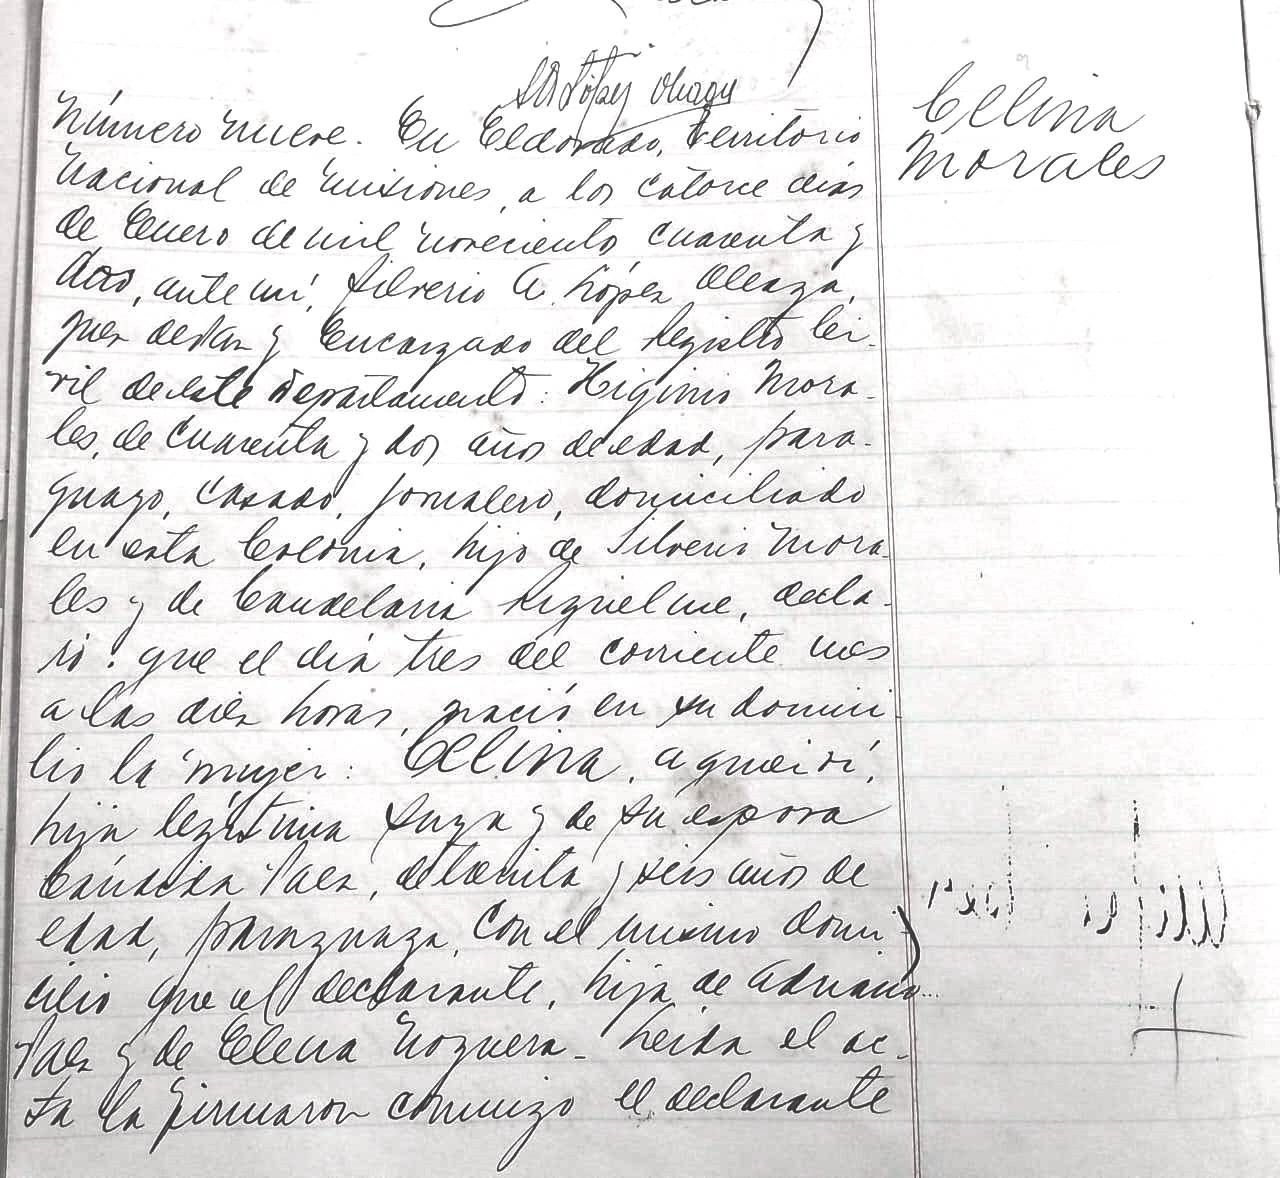 Celina
Morales
Número nueve. En Eldorado, Territorio
Nacional de Misiones, a los catorce dias
de Enero de mil novecientos cuarenta y
dos, ante mi, Silverio A. López Oleaga,
juez de Paz y Encargado del Registro Ci-
vil de este Departamento: Higinio Mora-
les, de cuarenta y dos años de edad, para-
guayo, casado, jornalero, domiciliado
en esta Colonia, hijo de Silverio Mora-
les y de Candelaria Riquelme, decla-
ró: que el día tres del corriente mes
a las diez horas, nació en su domici-
lio la mujer: Celina,
hija legítima suya y de su esposa
Cándida Paez, de treinta y seis años de
edad, paraguaya, con el mismo domi-
cilio que el declarante, hija de Adriano
Paez y de Elena Noguera - Leida el ac-
ta la firmaron conmigo el declarante